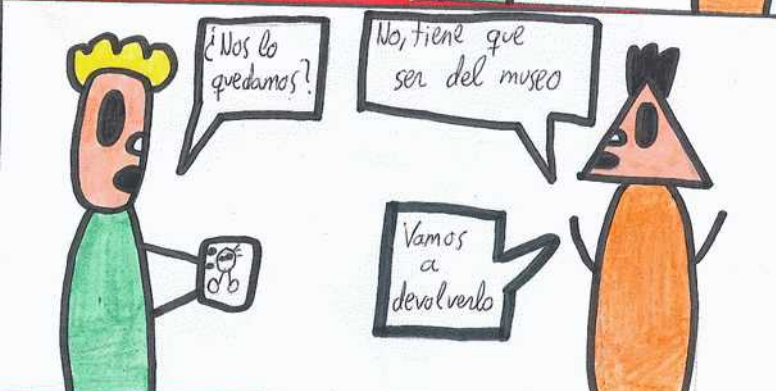 ¿Nos lo
quedamos?
No, tiene que
ser del museo
Vamos
a
devolverlo